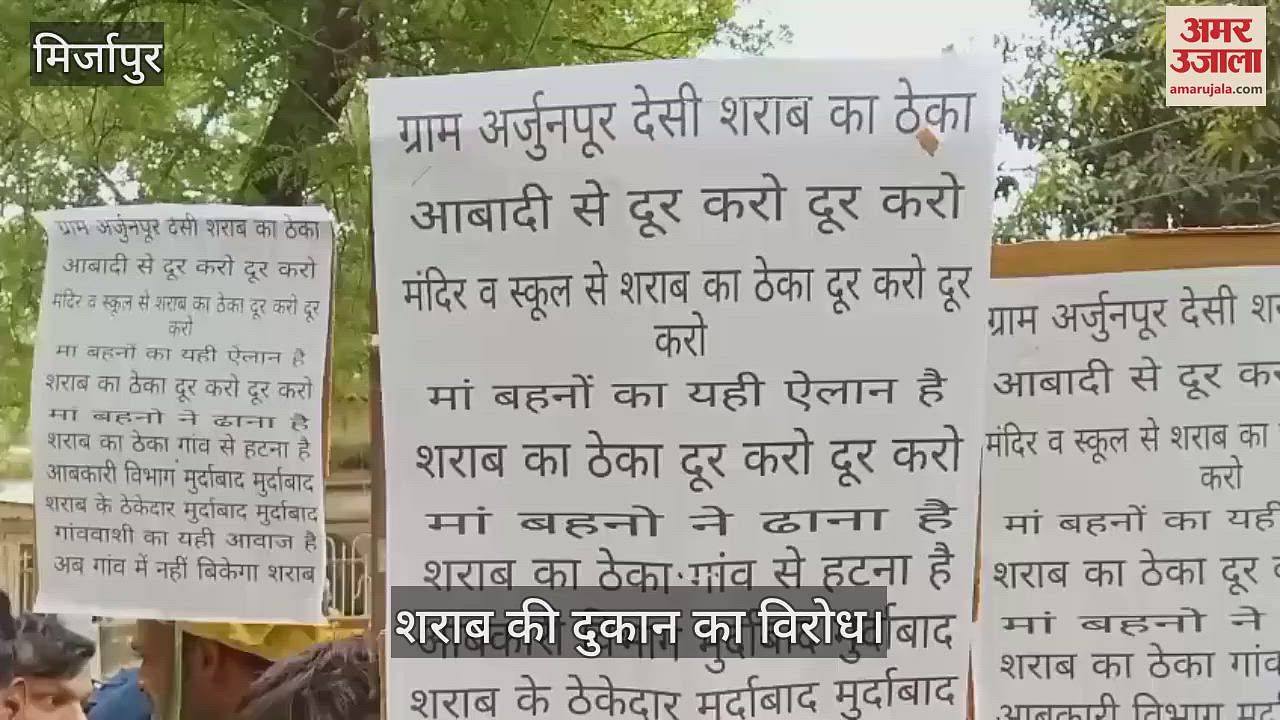 मिर्जापुर
अमर
उजाला
amarujala.com
ग्राम अर्जुनपूर देसी शराब का ठेका
आबादी से दूर करो दूर करो
मंदिर व स्कूल से शराब का ठेका दूर करो दूर
करो
मां बहनों का यही ऐलान है
शराब का ठेका दूर करो दूर करो
मां बहनो ने ढाना है
शराब का ठेका गांव से हटना है
आबकारी विभाग मुर्दाबाद मुर्दाबाद
शराब के ठेकेदार मुर्दाबाद मुर्दाबाद
गांववाशी का यही आवाज है
अब गांव में नहीं बिकेगा शराब
ग्राम अर्जुनपूर देसी शराब का ठेका
आबादी से दूर करो दूर करो
मंदिर व स्कूल से शराब का ठेका दूर करो दूर
करो
मां बहनों का यही ऐलान है
शराब का ठेका दूर करो दूर करो
मां बहनो ने ढाना है
शराब का ठेका गांव से हटना है
आबकारी विभाग मुर्दाबाद मुर्दाबाद
शराब के ठेकेदार मुर्दाबाद मुर्दाबाद
ग्राम अर्जुनपूर देसी
आबादी से दूर
मंदिर व स्कूल से शराब का
करो
मां बहनों का यही
शराब का ठेका दूर
मां बहनो ने
शराब का ठेका गांव
आबकारी विभाग
शराब की दुकान का विरोध।